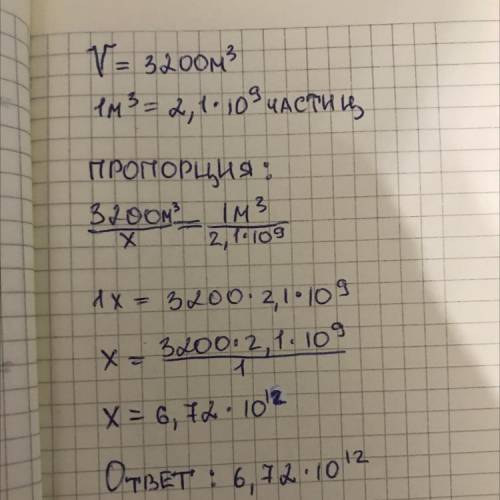 V = 3200м³
1м³ = 2,1·10⁹ частиц
ПРОПОРЦИЯ:
3200м³/x = 1м³/2,1·10⁹
1x = 3200·2,1·10⁹
x = 3200·2,1·10⁹/1
x = 6,72·10¹²
Ответ: 6,72·10¹²